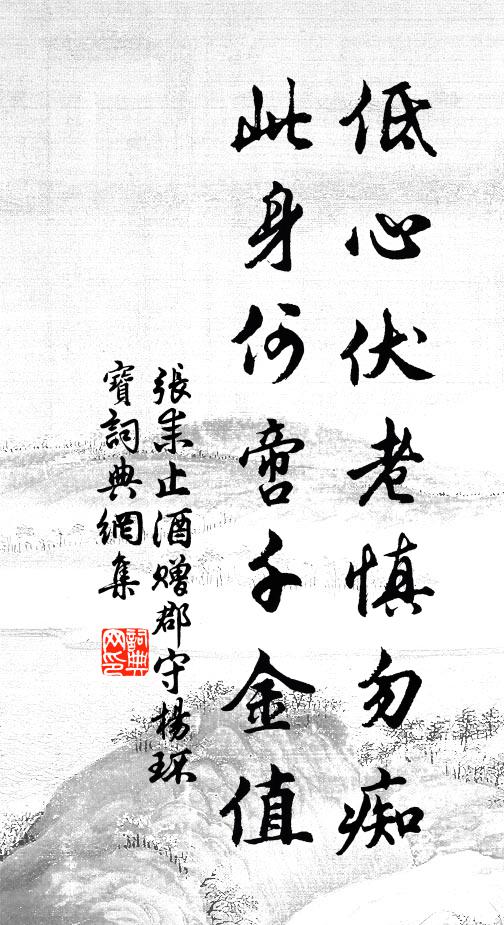 低心伏老慎勿痴
此身何啻千金值
張耒止酒贈郡守楊環
寶詞典網集
詞典网印